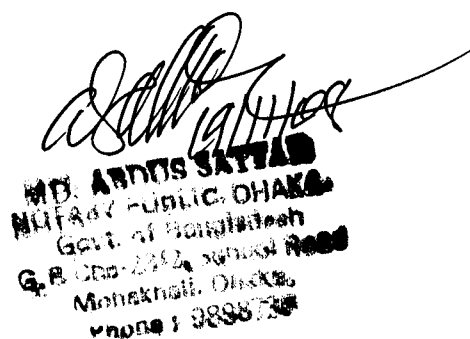 19/11/08
MD. ABDUS SATTAR
NOTARY PUBLIC, DHAKA.
Govt. of Bangladesh
School Road
Mohakhali, Dhaka,
Phone :